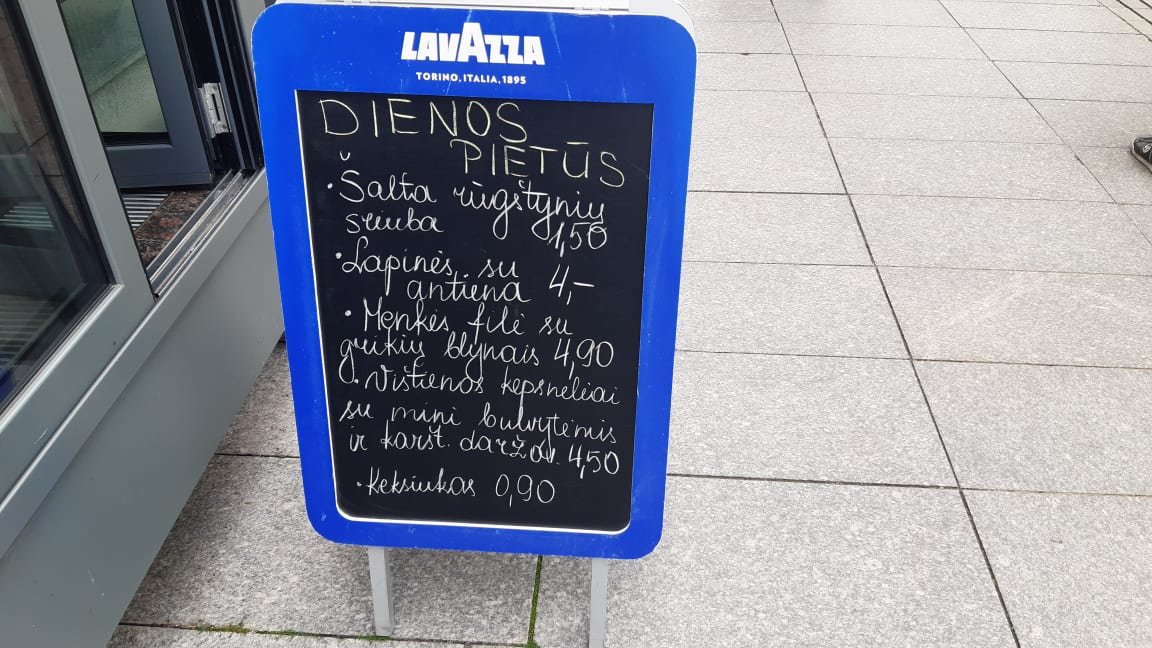 LAVAZZA
TORINO, ITALIA, 1895
DIENOS
PIETŪS
• Šalta rūgštynių
sriuba 1,50
• Lapinės su
antiena 4,-
• Menkės filė su
grikių blynais 4,90
• Vištienos kepsneliai
su mini bulvytėmis
ir karšt. daržov. 4,50
• Keksiukas 0,90